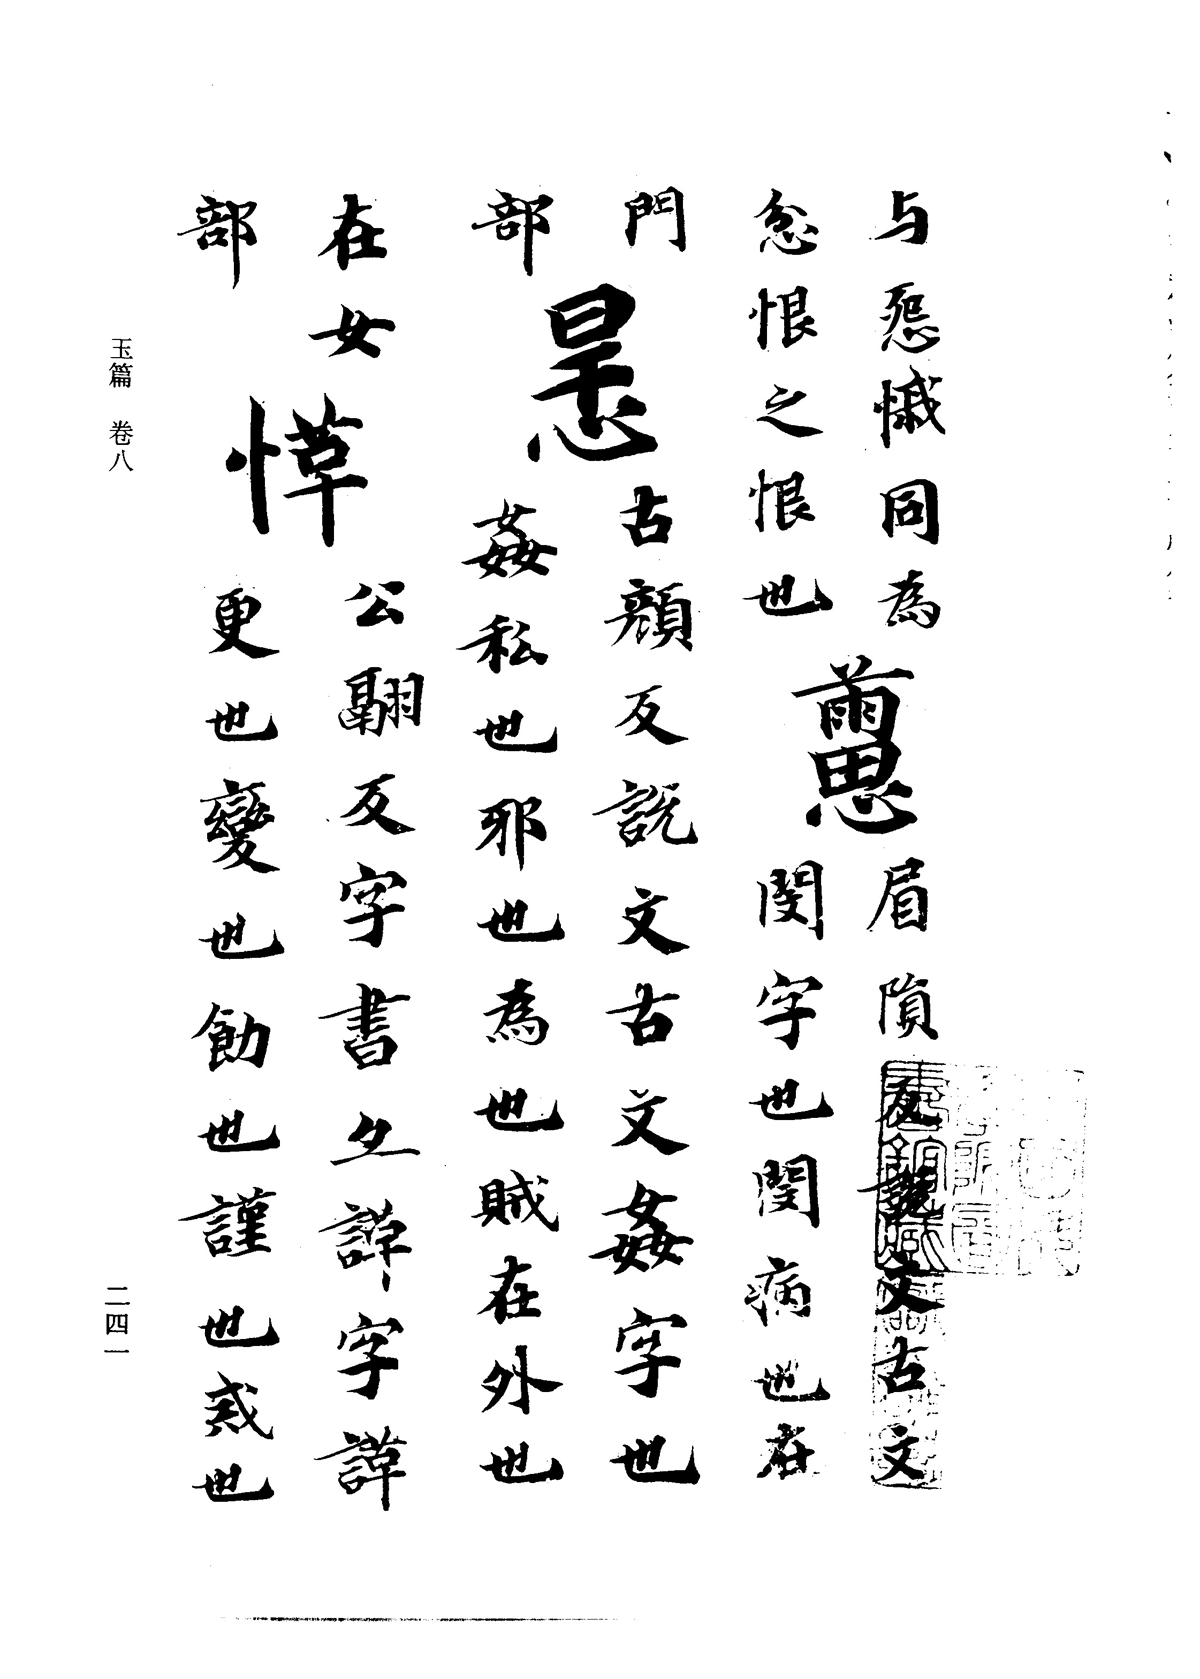 与怨慽同為
忿恨之恨也
眉隕反説文古文
閔字也閔病也在
門
部
𢙶
古顔反説文古文姦字也
姦私也邪也為也賊在外也
在女
部
愅
公翮反字書亦諽字諽
更也變也飭也謹也戒也
玉篇 卷八
二四一